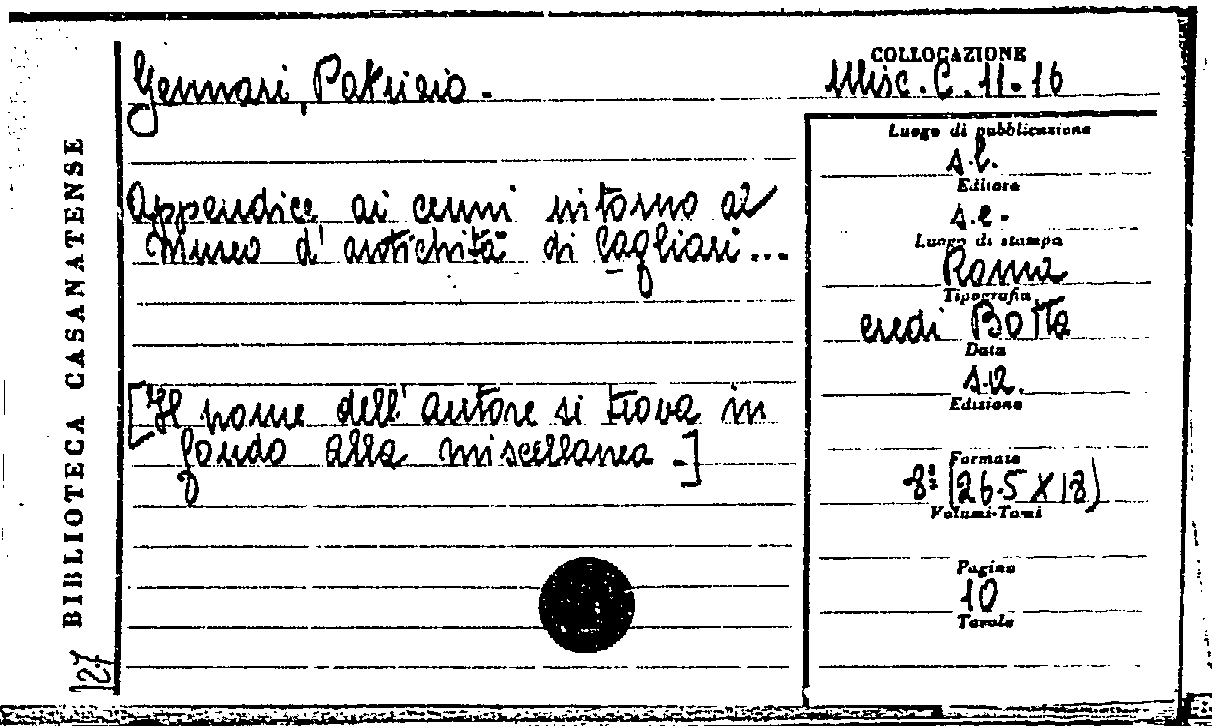 BIBLIOTECA CASANATENSE
127
Gennari, Patrizio.
Appendice ai cenni intorno al
Museo d'antichità di Cagliari...
[Il nome dell'autore si trova in
fondo alla miscellanea.]
COLLOCAZIONE
Misc. C. 11-16
Luogo di pubblicazione
s.l.
Editore
s.e.
Luogo di stampa
Roma
Tipografia
eredi Botta
Data
s.a.
Edizione
Formato
8º (26.5 X 18)
Volumi-Tomi
Pagine
10
Tavole